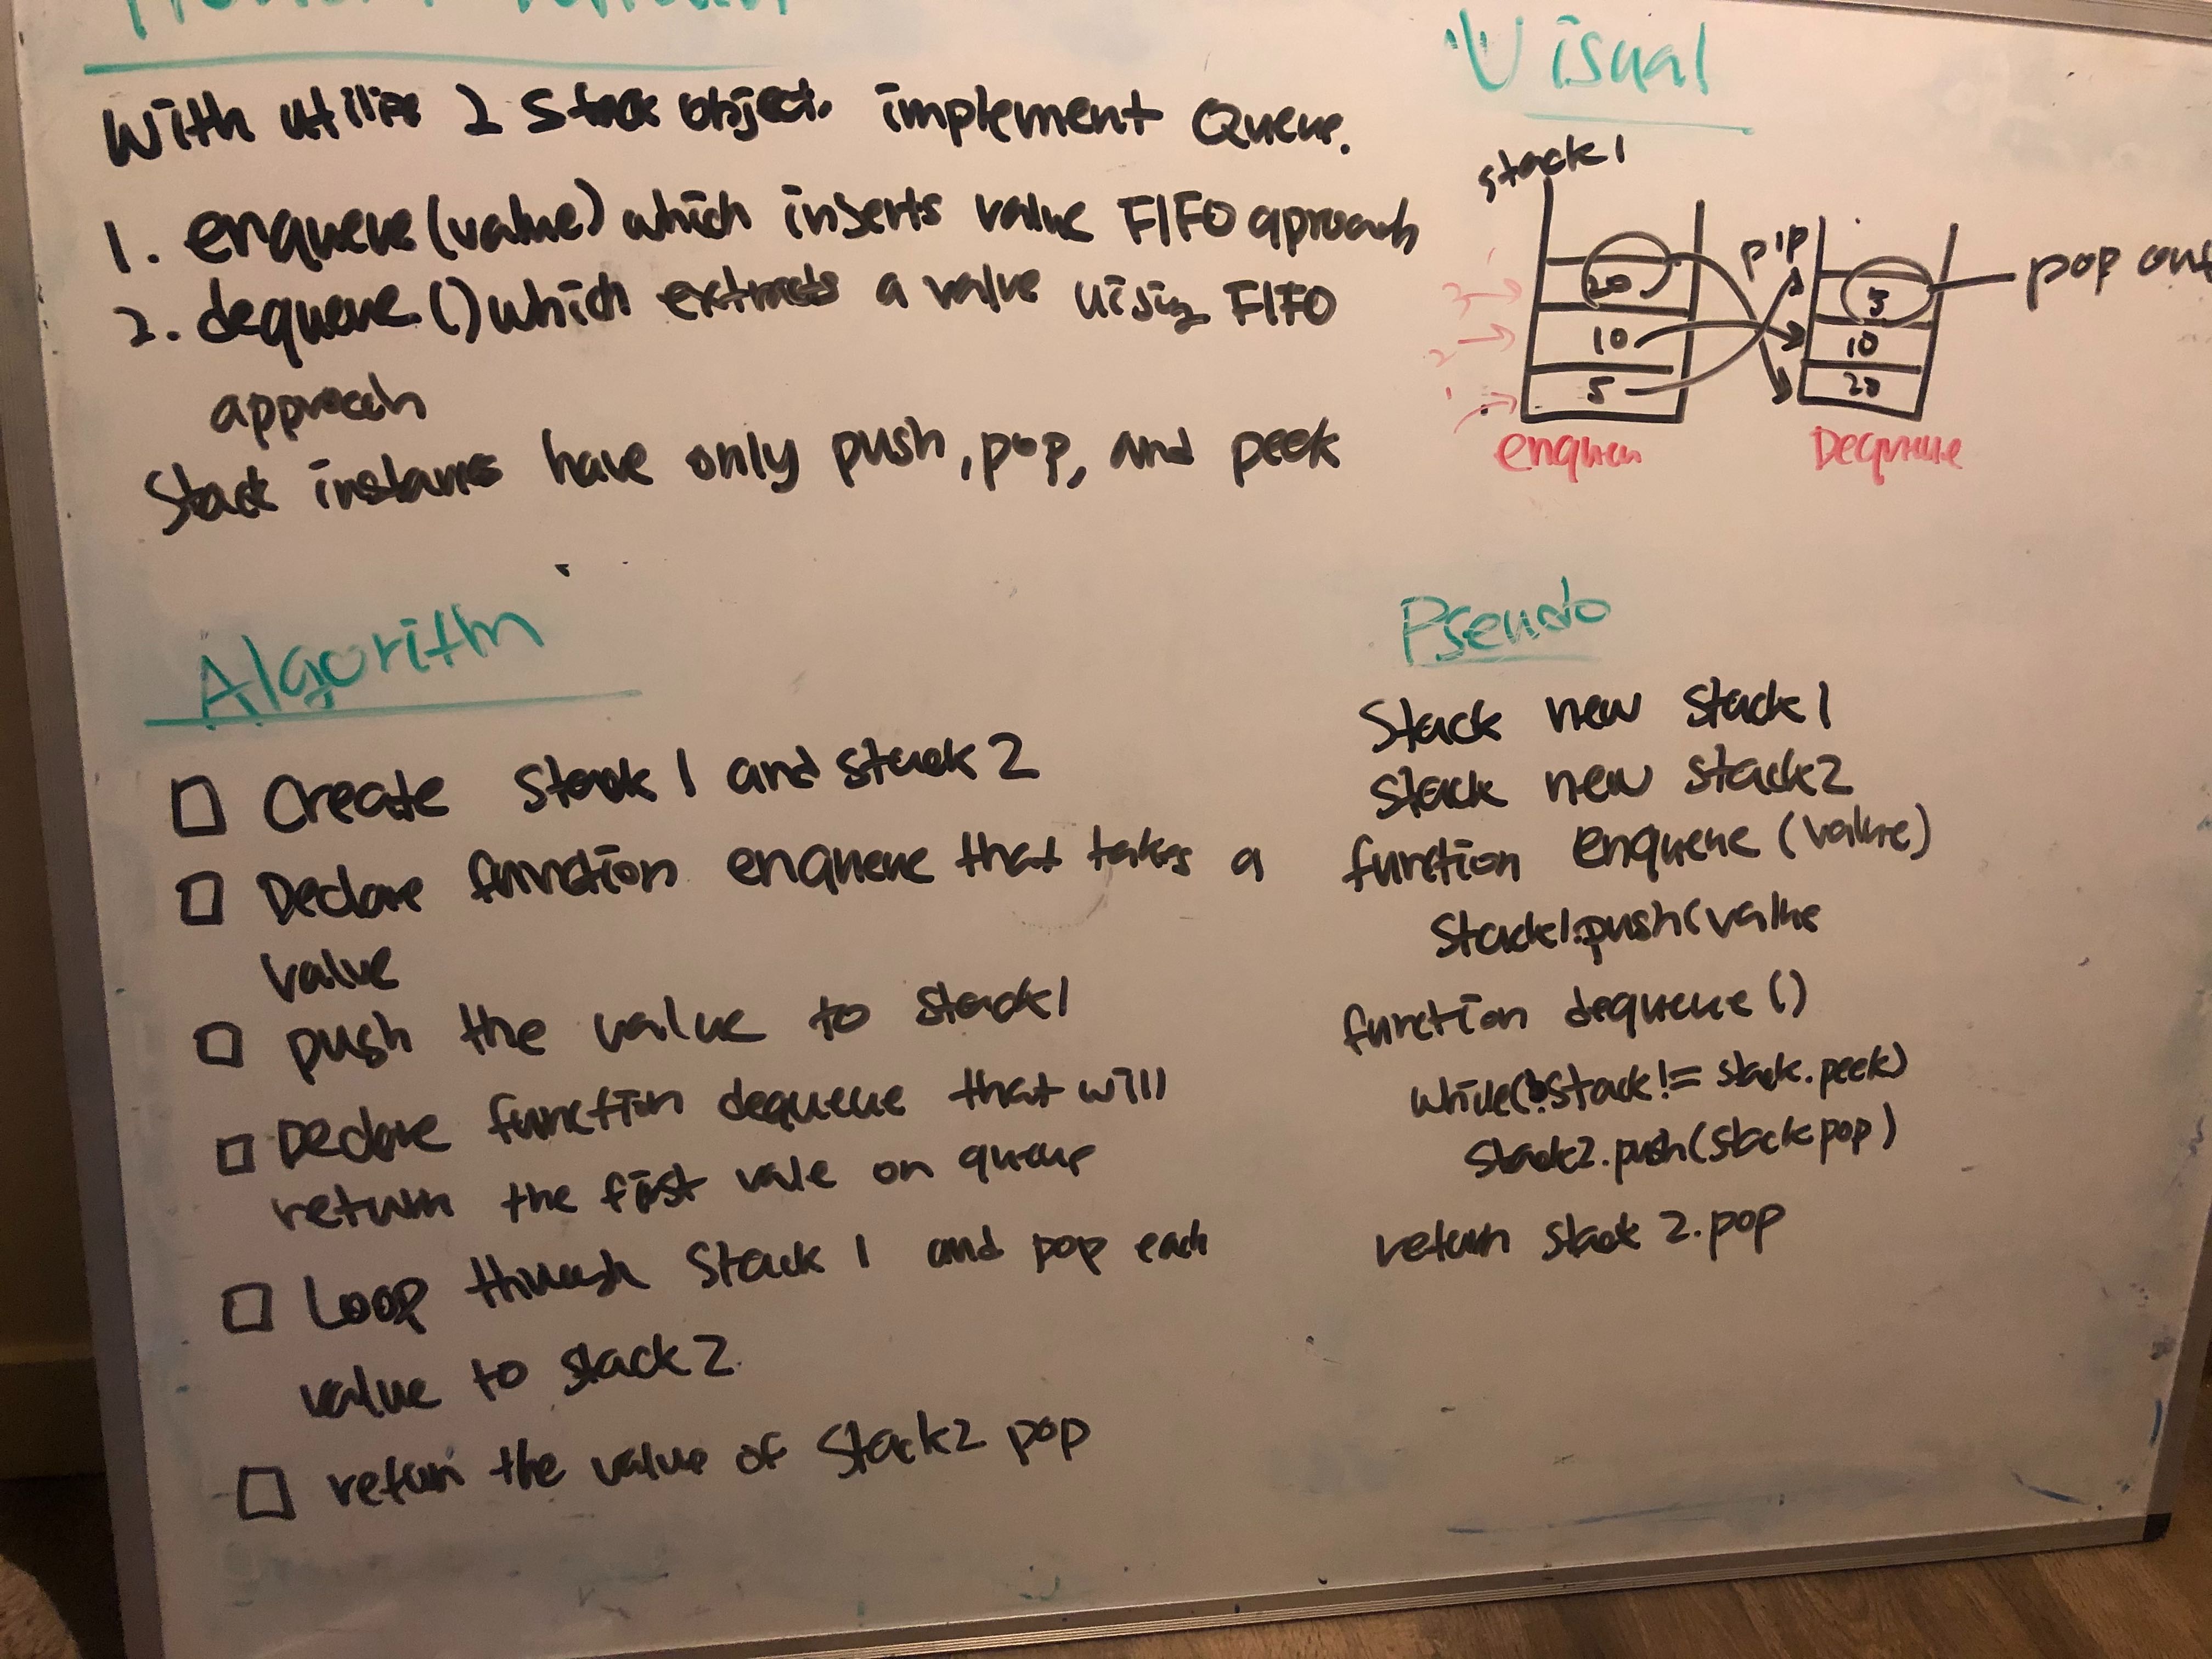 With utilize 2 Stack object. implement Queue.
1. enqueue(value) which inserts value FIFO aproach
2. dequeue() which extracts a value uising FIFO
approach
Stack instans have only push, pop, and peek
Visual
stack1
20
10
5
pip
5
10
20
pop out
enqueu
Dequeue
Algorithm
□ Create stack 1 and stack 2
□ Declare function enqueue that takes a
value
□ push the value to stack1
□ Declare function dequeue that will
return the first vale on queue
□ Loop through Stack 1 and pop each
value to stack 2.
□ return the value of Stack2 pop
Pseudo
Stack new stack1
Stack new stack2
function enqueue (value)
Stack1.push(value
function dequeue()
while(!stack!= stack.peek)
stack2.push(stack pop)
return stack 2.pop